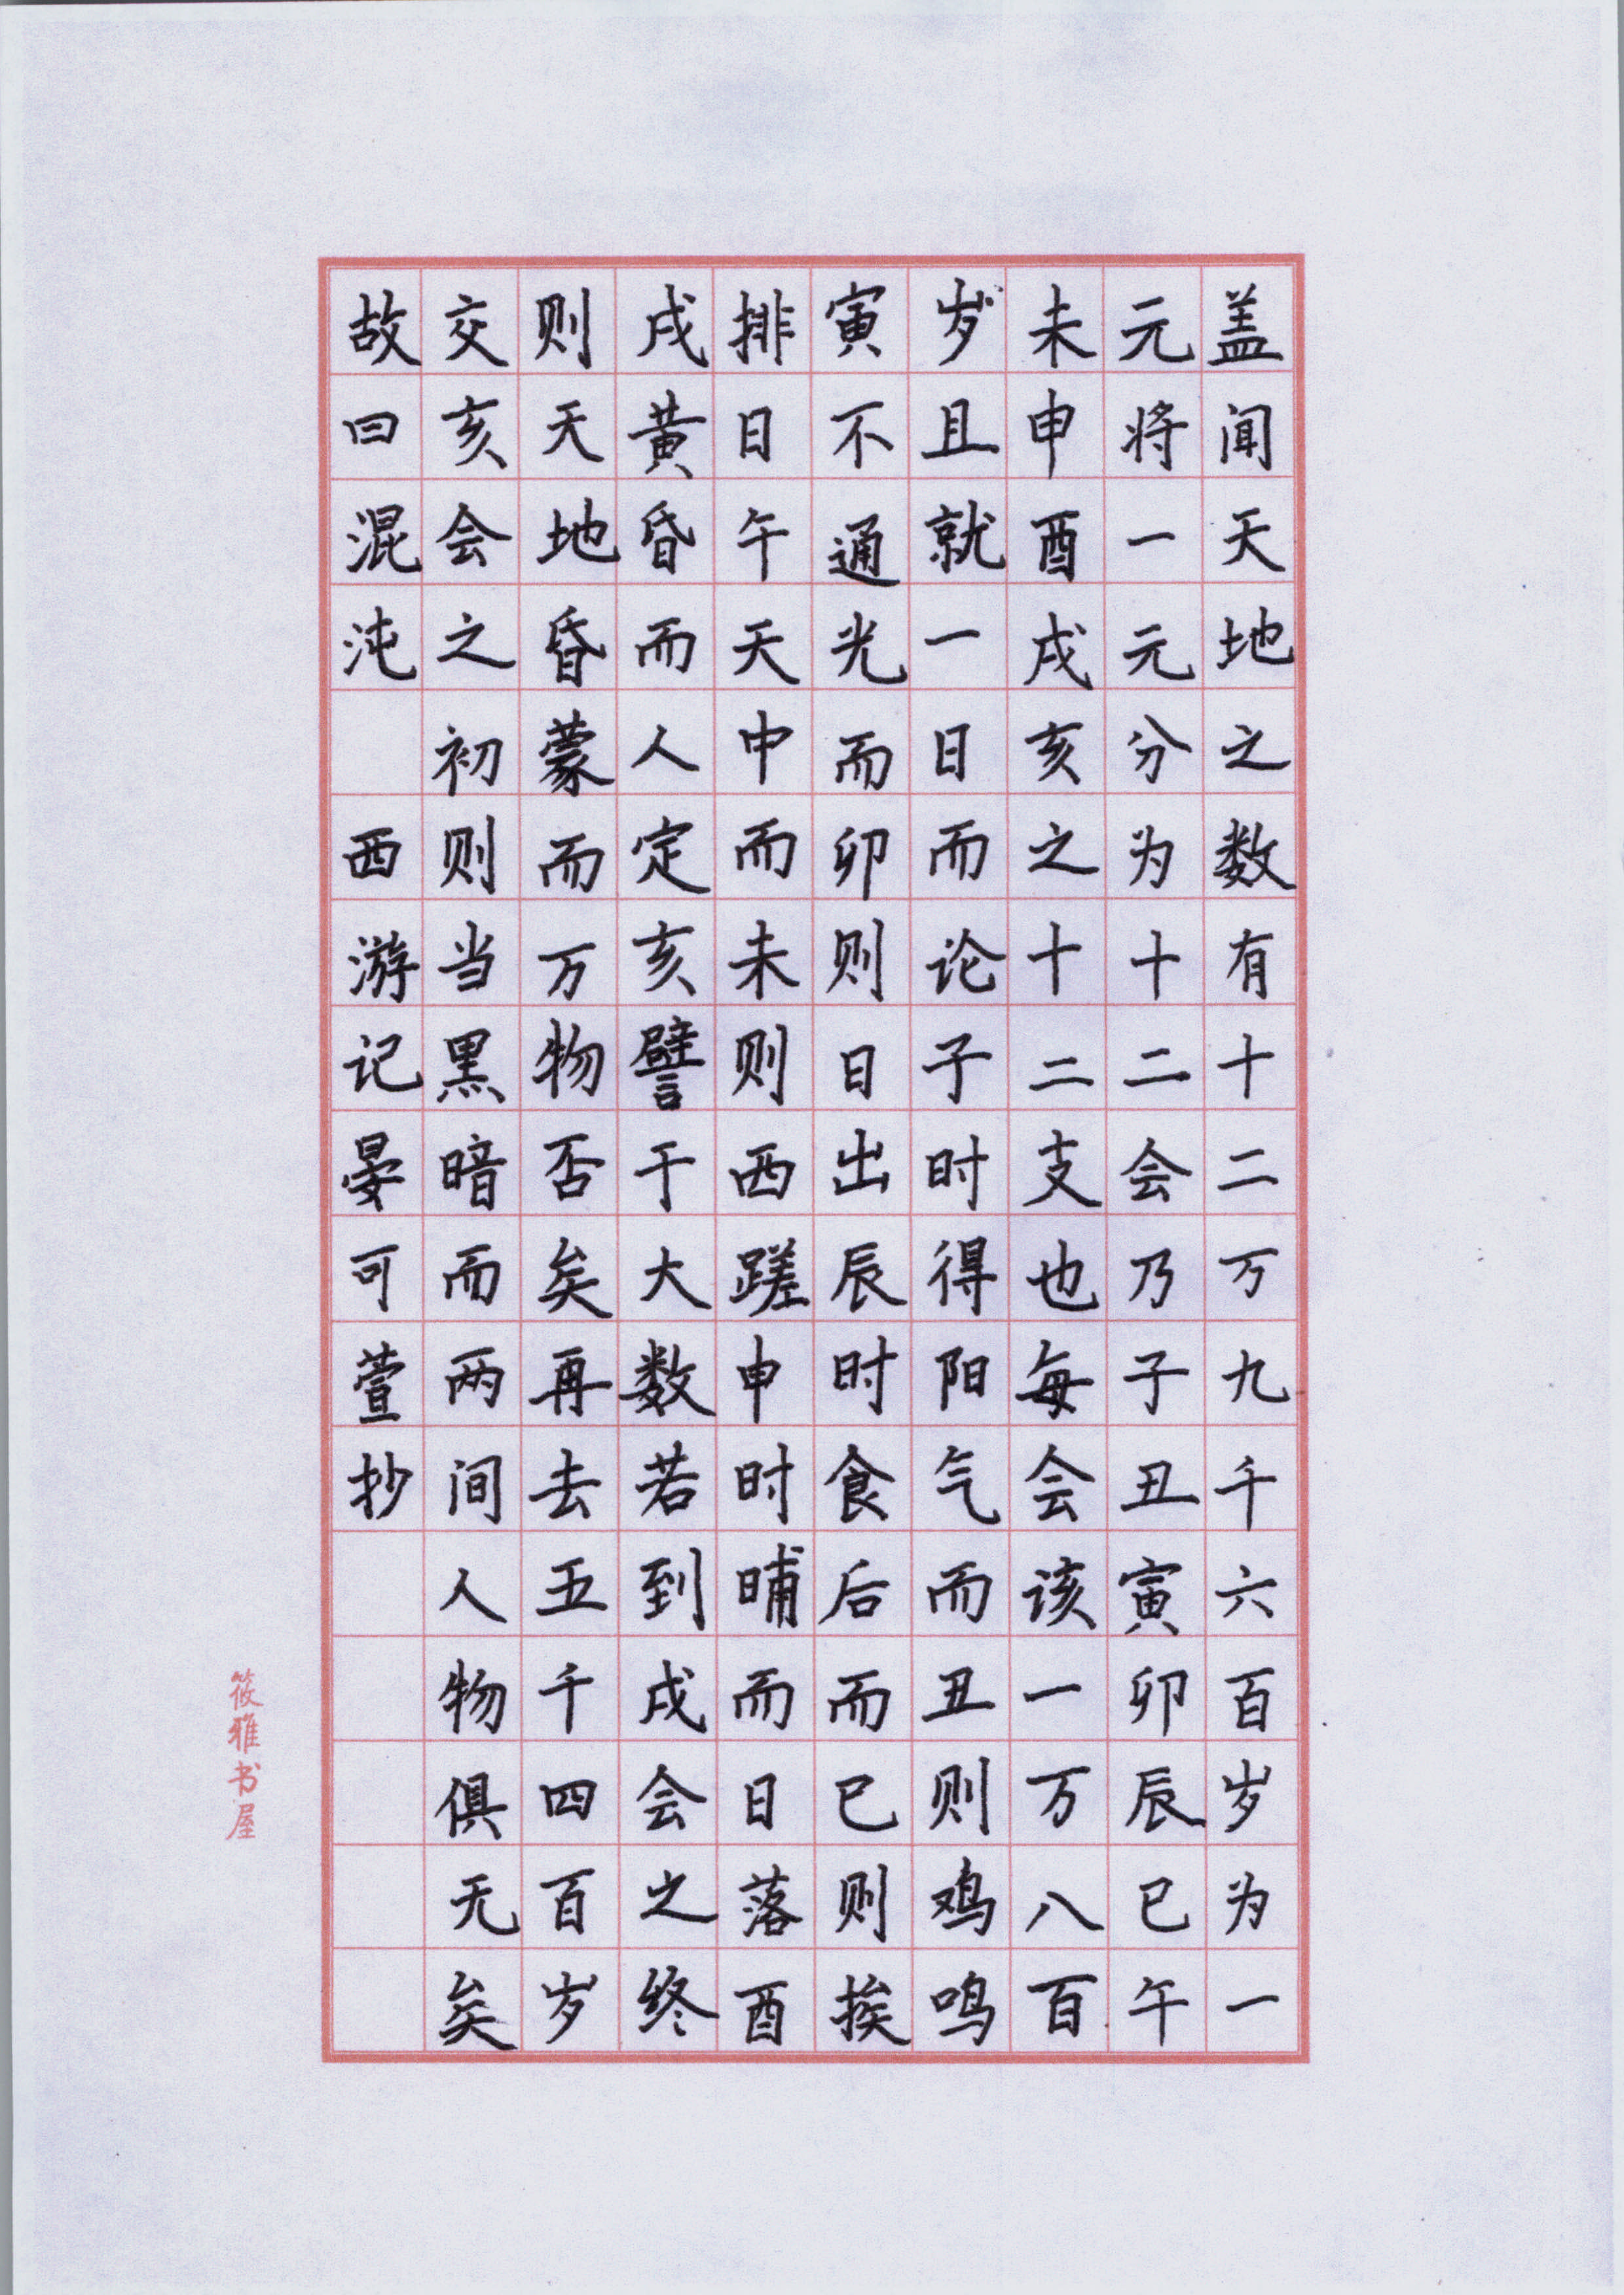 盖闻天地之数有十二万九千六百岁为一
元将一元分为十二会乃子丑寅卯辰巳午
未申酉戌亥之十二支也每会该一万八百
岁且就一日而论子时得阳气而丑则鸡鸣
寅不通光而卯则日出辰时食后而巳则挨
排日午天中而未则西蹉申时晡而日落酉
戌黄昏而人定亥譬于大数若到戌会之终
则天地昏蒙而万物否矣再去五千四百岁
交亥会之初则当黑暗而两间人物俱无矣
故曰混沌 西游记晏可萱抄
筱雅书屋